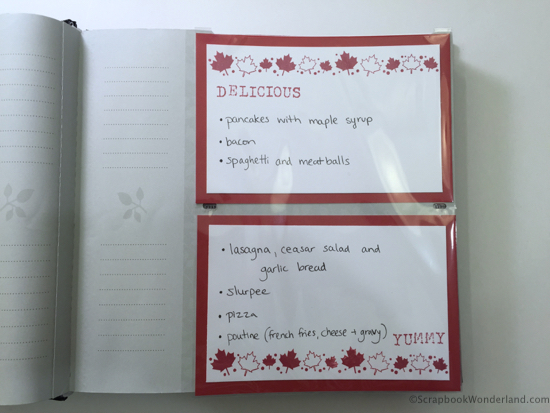 DELICIOUS
• pancakes with maple syrup
• bacon
• spaghetti and meatballs
• lasagna, ceasar salad and
garlic bread
• slurpee
• pizza
• poutine (french fries, cheese + gravy)
YUMMY
©ScrapbookWonderland.com